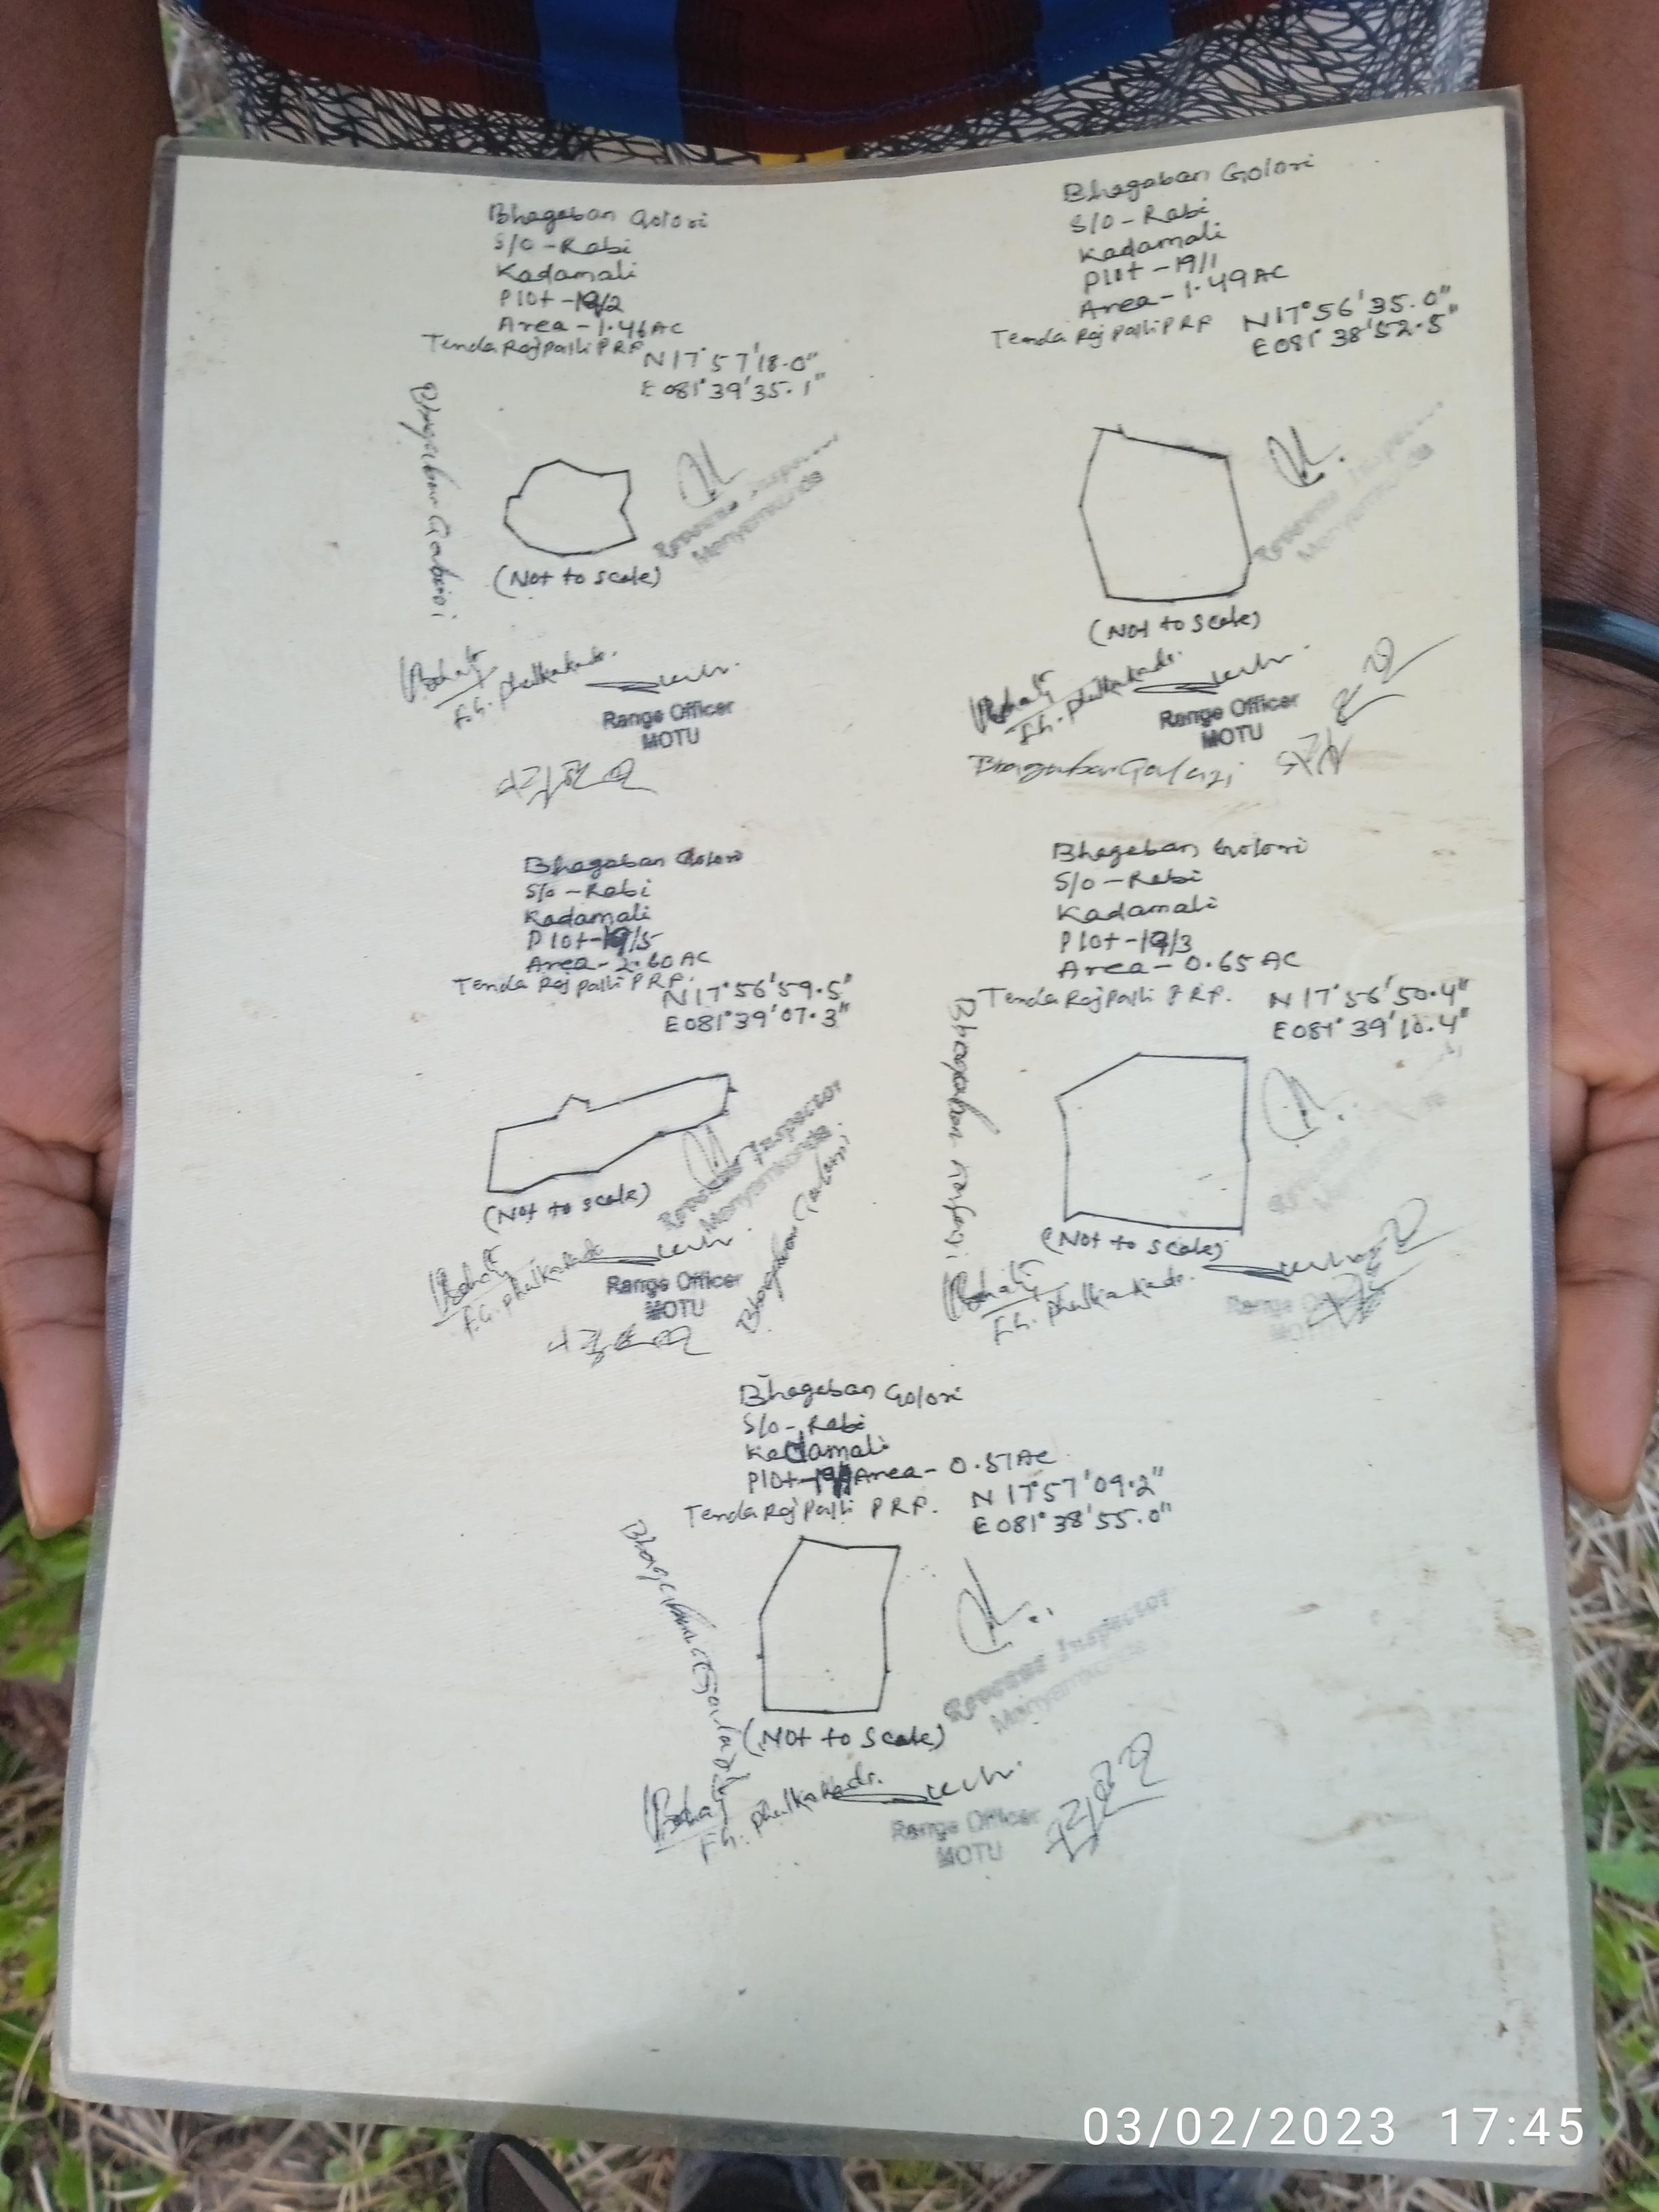 Bhagaban Golori
S/O - Rabi
Kadamali
Plot - 19/2
Area - 1.46 AC
Tenda Rajpalli PRF
N 17° 57' 18.0"
E 081° 39' 35.1"
(Not to scale)
Revenue Inspector
Manyamkonda
F.G. Phulkakada.
Range Officer
MOTU
Bhagaban Golori
S/O - Rabi
Kadamali
Plot - 19/1
Area - 1.49 AC
Tenda Rajpalli PRF
N 17° 56' 35.0"
E 081° 38' 52.5"
(Not to scale)
Revenue Inspector
Manyamkonda
F.G. Phulkakada.
Range Officer
MOTU
Bhagaban Golori
S/O - Rabi
Kadamali
Plot - 19/5
Area - 2.60 AC
Tenda Rajpalli PRF.
N 17° 56' 59.5"
E 081° 39' 07.3"
(Not to scale)
Revenue Inspector
Manyamkonda
F.G. Phulkakada
Range Officer
MOTU
Bhagaban Golori
S/O - Rabi
Kadamali
Plot - 19/3
Area - 0.65 AC
Tenda Rajpalli PRF.
N 17° 56' 50.4"
E 081° 39' 10.4"
(Not to scale)
F.G. Phulkakada.
Range Officer
MOTU
Bhagaban Golori
S/O - Rabi
Kadamali
Plot - Area - 0.51 AC
Tenda Rajpalli PRF.
N 17° 57' 09.2"
E 081° 38' 55.0"
(Not to scale)
Revenue Inspector
Manyamkonda
F.G. Phulkakada.
Range Officer
MOTU
03/02/2023 17:45